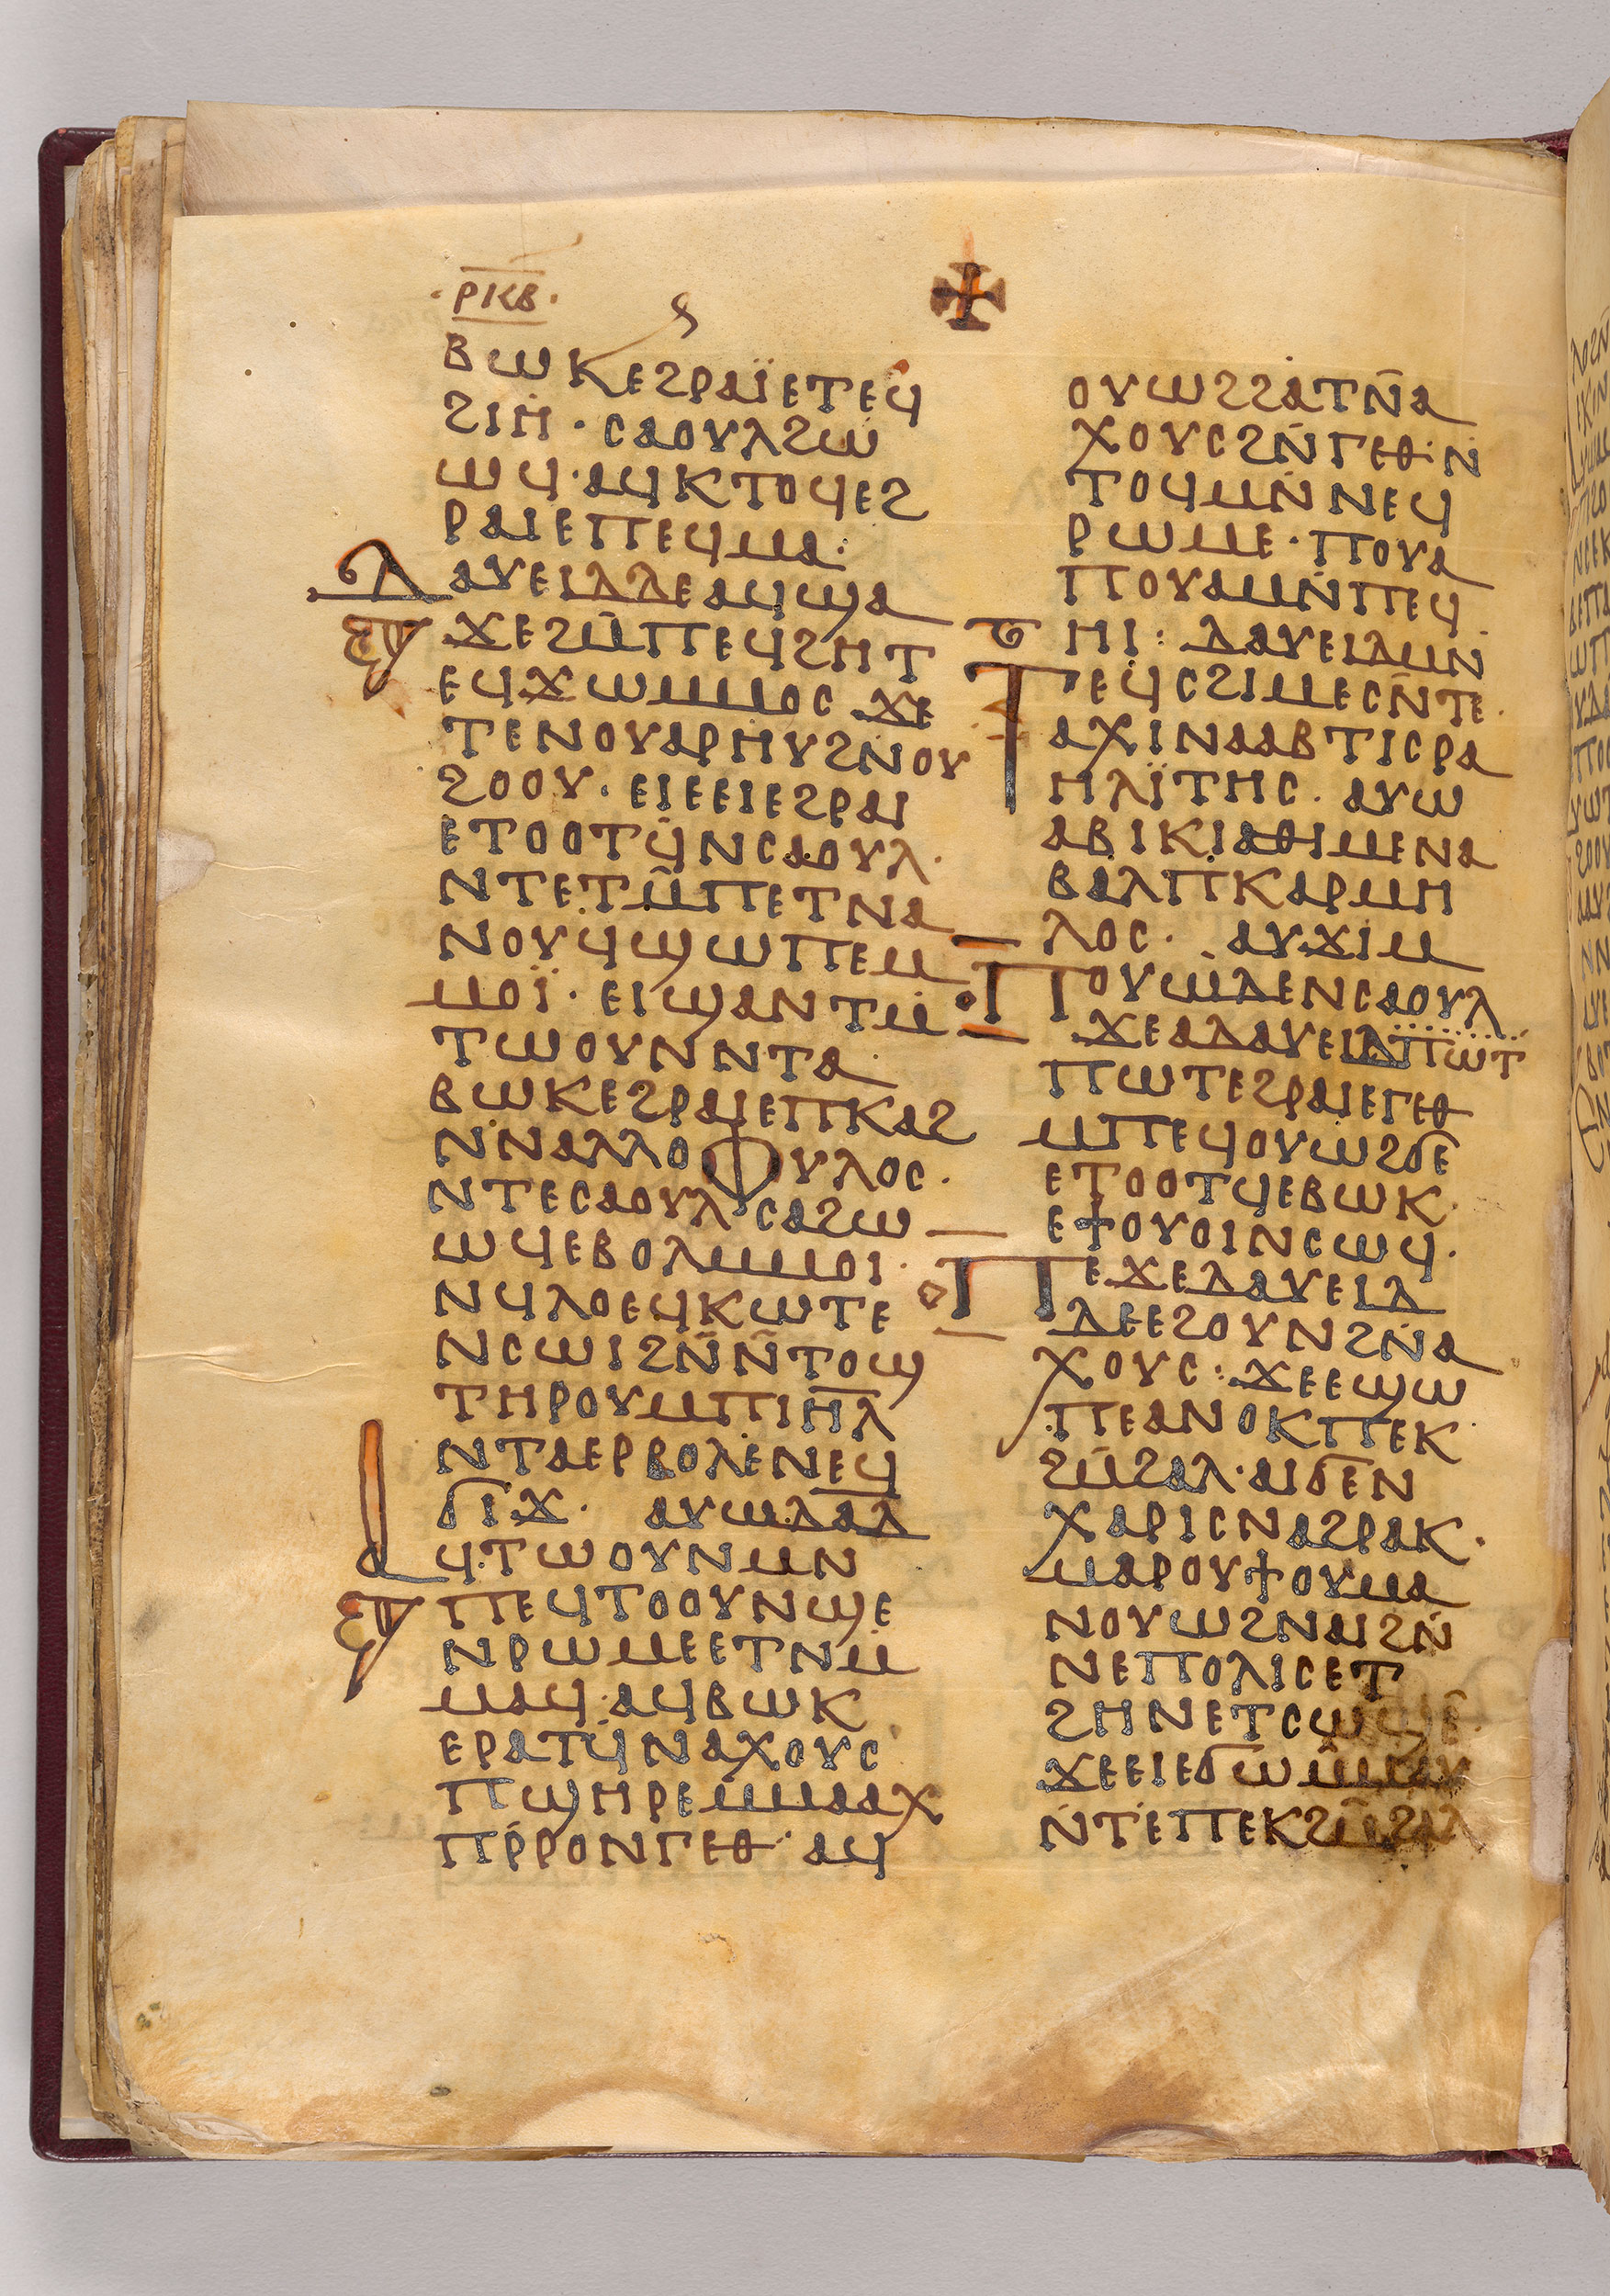 ⲣⲕⲃ
ⲃⲱⲕⲉϩⲣⲁⲓ̈ⲉⲧⲉϥ
ϩⲓⲏ · ⲥⲁⲟⲩⲗϩⲱ
ⲱϥ · ⲁϥⲕⲧⲟϥⲉϩ
ⲣⲁⲓⲉⲡⲉϥⲙⲁ :
ⲇⲁⲩⲉⲓⲇⲇⲉⲁϥϣⲁ
ϫⲉϩⲙ̄ⲡⲉϥϩⲏⲧ
ⲉϥϫⲱⲙⲙⲟⲥ ϫⲉ
ⲧⲉⲛⲟⲩⲁⲣⲏⲩϩⲛⲟⲩ
ϩⲟⲟⲩ · ⲉⲓⲉⲉⲓⲉϩⲣⲁⲓ
ⲉⲧⲟⲟⲧϥ̄ⲛⲥⲁⲟⲩⲗ ·
ⲛⲧⲉⲧⲙ̄ⲡⲉⲧⲛⲁ
ⲛⲟⲩϥϣⲱⲡⲉⲙ
ⲙⲟⲓ̈ · ⲉⲓϣⲁⲛⲧⲙ̄
ⲧⲱⲟⲩⲛⲛⲧⲁ
ⲃⲱⲕⲉϩⲣⲁⲓⲉⲡⲕⲁϩ
ⲛⲛⲁⲗⲗⲟⲫⲩⲗⲟⲥ ·
ⲛⲧⲉⲥⲁⲟⲩⲗⲥⲁϩⲱ
ⲱϥⲉⲃⲟⲗⲙⲙⲟⲓ ·
ⲛϥⲗⲟⲉϥⲕⲱⲧⲉ
ⲛⲥⲱⲓϩⲛ̄ⲛ̄ⲧⲟϣ
ⲧⲏⲣⲟⲩⲙⲡⲓⲏ̄ⲗ̄
ⲛⲧⲁⲉⲣⲃⲟⲗⲉⲛⲉϥ
ϭⲓϫ · ⲁⲩⲱⲇⲁⲇ
ⲁϥⲧⲱⲟⲩⲛⲙⲛ
ⲡⲉϥⲧⲟⲟⲩⲛϣⲉ
ⲛⲣⲱⲙⲉⲉⲧⲛⲙ̄
ⲙⲁϥ · ⲁϥⲃⲱⲕ
ⲉⲣⲁⲧϥ̄ⲛⲁⲭⲟⲩⲥ
ⲡϣⲏⲣⲉⲙ̄ⲙⲁⲁⲭ
ⲡⲣ̄ⲣⲟⲛⲅⲉⲑ · ⲁϥ
ⲟⲩⲱϩϩⲁⲧⲛ̄ⲁ
ⲭⲟⲩⲥϩⲛ̄ⲅⲉⲑ · ⲛ̄
ⲧⲟϥⲙⲛ̄ⲛⲉϥ
ⲣⲱⲙⲉ · ⲡⲟⲩⲁ
ⲡⲟⲩⲁⲙⲛ̄ⲡⲉϥ
ⲏⲓ : ⲇⲁⲩⲉⲓⲇⲙⲛ
ⲧⲉϥⲥϩⲓⲙⲉⲥⲛ̄ⲧⲉ ·
ⲁⲭⲓⲛⲁⲁⲃⲧⲓⲥⲣⲁ
ⲏⲗⲓ̈ⲧⲏⲥ · ⲁⲩⲱ
ⲁⲃⲓⲕⲓⲁⲑⲓⲙⲉⲛⲁ
ⲃⲁⲗⲡⲕⲁⲣⲙⲏ
ⲗⲟⲥ · ⲁⲩϫⲓⲙ
ⲡⲟⲩⲱⲇⲉⲛⲥⲁⲟⲩⲗ
ϫⲉⲁⲇⲁⲩⲉⲓⲇⲡⲱⲧ
ⲡⲱⲧⲉϩⲣⲁⲓⲉⲅⲉⲑ
ⲙⲡⲉϥⲟⲩⲱϩϭⲉ
ⲉⲧⲟⲟⲧϥⲉⲃⲱⲕ ·
ⲉϯⲟⲩⲟⲓⲛⲥⲱϥ ·
ⲡⲉϫⲉⲇⲁⲩⲉⲓⲇ
ⲇⲉⲉϩⲟⲩⲛϩⲛ̄ⲁ
ⲭⲟⲩⲥ : ϫⲉⲉϣⲱ
ⲡⲉⲁⲛⲟⲕⲡⲉⲕ
ϩⲙ̄ϩⲁⲗ · ⲁⲓϭⲉⲛ
ⲭⲁⲣⲓⲥⲛⲁϩⲣⲁⲕ ·
ⲙⲁⲣⲟⲩϯⲟⲩⲙⲁ
ⲛⲟⲩⲱϩⲛⲁⲓϩⲛ̄
ⲛⲉⲡⲟⲗⲓⲥⲉⲧ
ϩⲏⲛⲉⲧⲥⲱϣⲉ
ϫⲉⲉⲓⲉϭⲱⲙ̄ⲙⲁⲩ
ⲛ̄ⲧⲉⲡⲉⲕϩⲙ̄ϩⲁⲗ